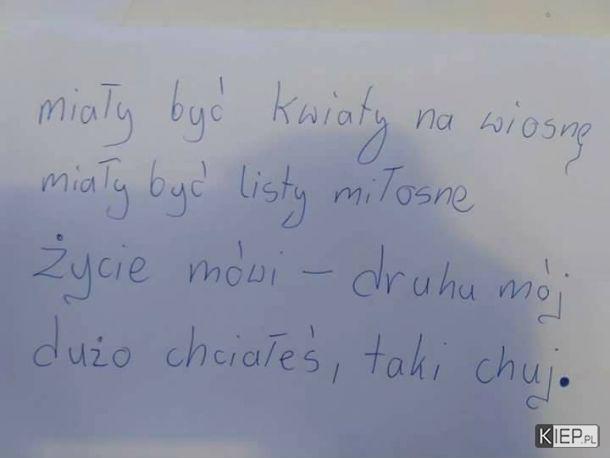 miały być kwiaty na wiosnę
miały być listy miłosne
życie mówi – druhu mój
dużo chciałeś, taki chuj.
KIEP.PL